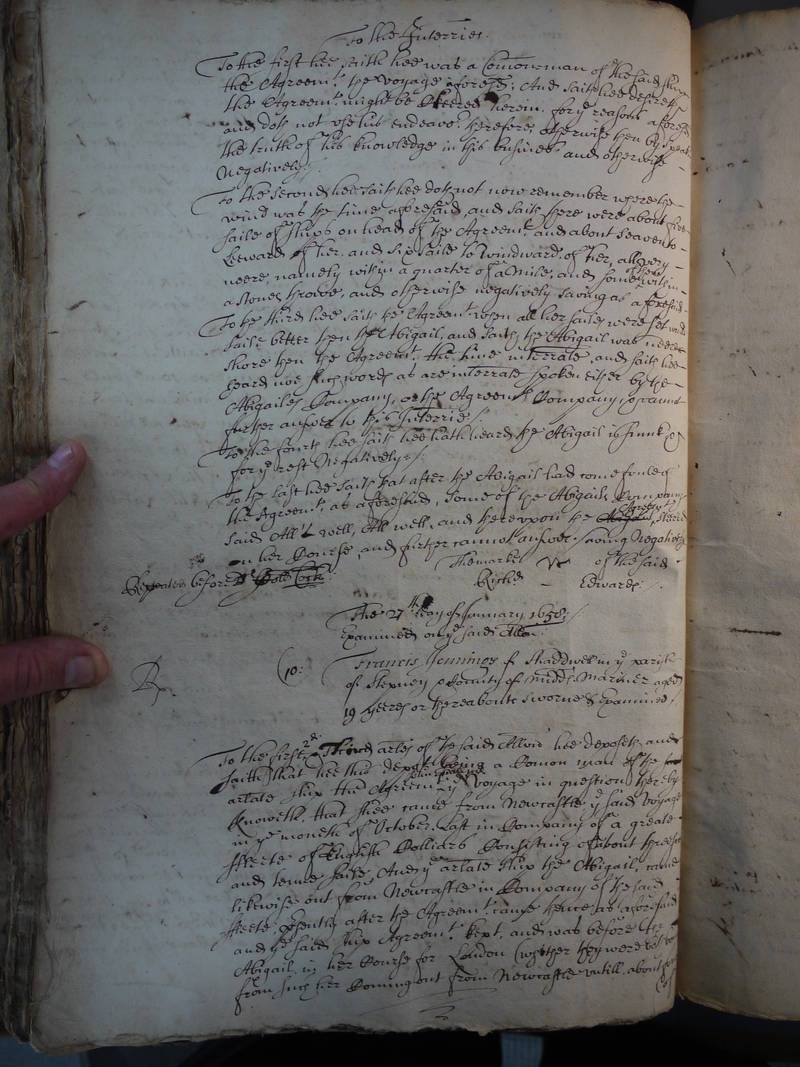 To the Interries.
To the first hee saith hee was a Comonman of the said shipp
the Agreemt. the voyage aforesd; And saith hee desireth
the Agreemt. might be Cleered herein, for ye reasons aforesd
and doth not use his endeavor. therefore otherwise then by speak
the truth of his knowledge in this busines and otherwise
Negatively.
To the second hee saith hee doth not now remember where the
wind was the time aforesaid, and saith there were about five
saile of shipps on head of the Agreemt. and about seaven to
Leeward of her, and six saile to Windward of her, all very
neere, namely within a quarter of a Mile, and some of them within
a stones throwe, and otherwise negatively saving as aforesaid.
To the third hee saith the Agreemt. when all her sailes were set would
saile better then the Abigail, and saith the Abigail was neerer
shore then the Agreemt. the time interrate, and saith hee
heard noe such words as are interrate spoken either by the
Abigailes Company, or the Agreemts. Company, & cannot
further answer to this Interrie.
To the fourth hee saith hee hath heard the Abigail is sunk &
for ye rest Negatively.
To the last hee saith that after the Abigail had come foule of
the Agreemt. as aforesaid, some of the Abigails Company
said All's well, All well, and thereupon the Agreemt. steered
on her Course, and further cannot answer. saving Negatively
The marke of the said
Richd. Edwards.
Repeated before
The 27th. day of January 1658.
Examined on ye said Allon.
(10: Francis Jennings of Shaddwell in ye parish
of Stepney & County of Middx. Mariner aged
19 yeeres or thereabouts sworne & Examined.
To the first 2d. Third artles of the said Allon hee deposeth and
saith, That hee this depont. being a Comon man of the
artate ship the Agreemt. ye voyage in question thereby
Knoweth, that shee came from Newcastle ye said voyage
in ye moneth of October Last in Company of a greate
ffleete of English Colliars Consisting of about threescore
and tenne saile, And ye artate ship the Abigail, came
likewise out from Newcastle in Company of the said
ffleete, presently after the Agreemt. came thence as aforesaid
and ye said ship Agreemt. kept, and was before the
Abigail in her Course for London (whither they were
from such her Coming out from Newcastle untill about